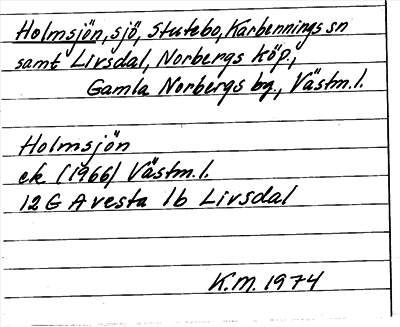 Holmsjön, sjö, Stutebo, Karbennings sn
samt Livsdal, Norbergs köp.,
Gamla Norbergs bg., Västm.l.
Holmsjön
ek (1966) Västm.l.
12 G Avesta 1b Livsdal
K.M. 1974